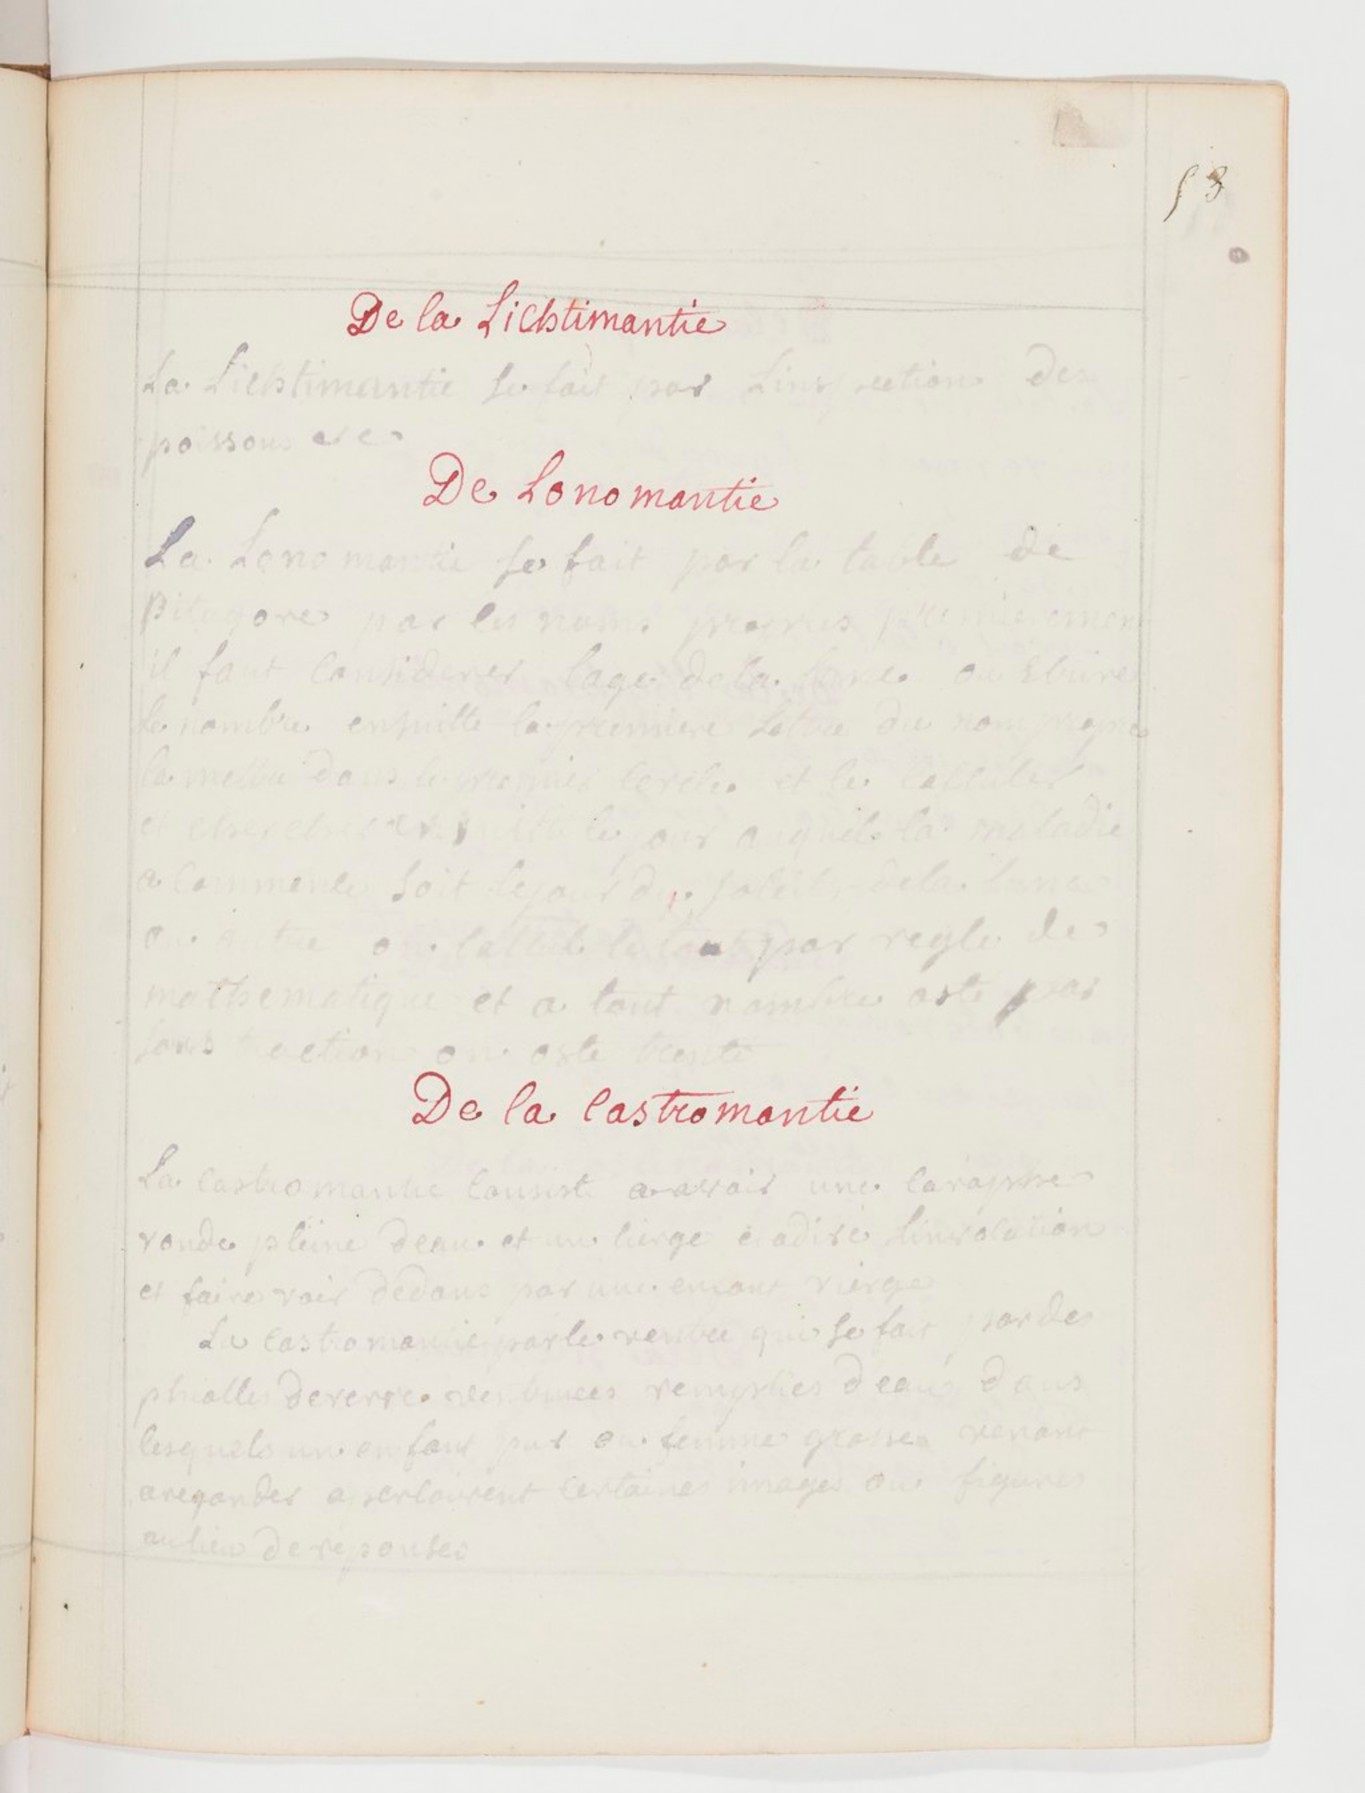 53
De la Lichtimantie
La Lichtimantie se fait par Linspection des
poissons etc
De Lonomantie
La Lonomantie se fait par la table de
Pitagore par les noms propres premierement
il faut considerer lage de la lune ou
le nombre ensuitte la premiere Lettre du nom propre
la mettre dans le premier cercle et le calculer
et chercher ensuitte le jour auquel la maladie
a commencé soit le jour du soleil de la lune
ou autre on calcul le tout par regle de
mathematique et a tout nombre oste par
soustraction on oste trente
De la Castromantie
La castromantie consiste a avoir une caraphe
ronde pleine deau et un cierge
et faire voir dedans par une enfant vierge
La castromantie par le ventre qui se fait par des
phialles de verre remplies deau dans
lesquels un enfant pur ou femme grosse venant
a regarder certaines images ou figures
au lieu de reponses